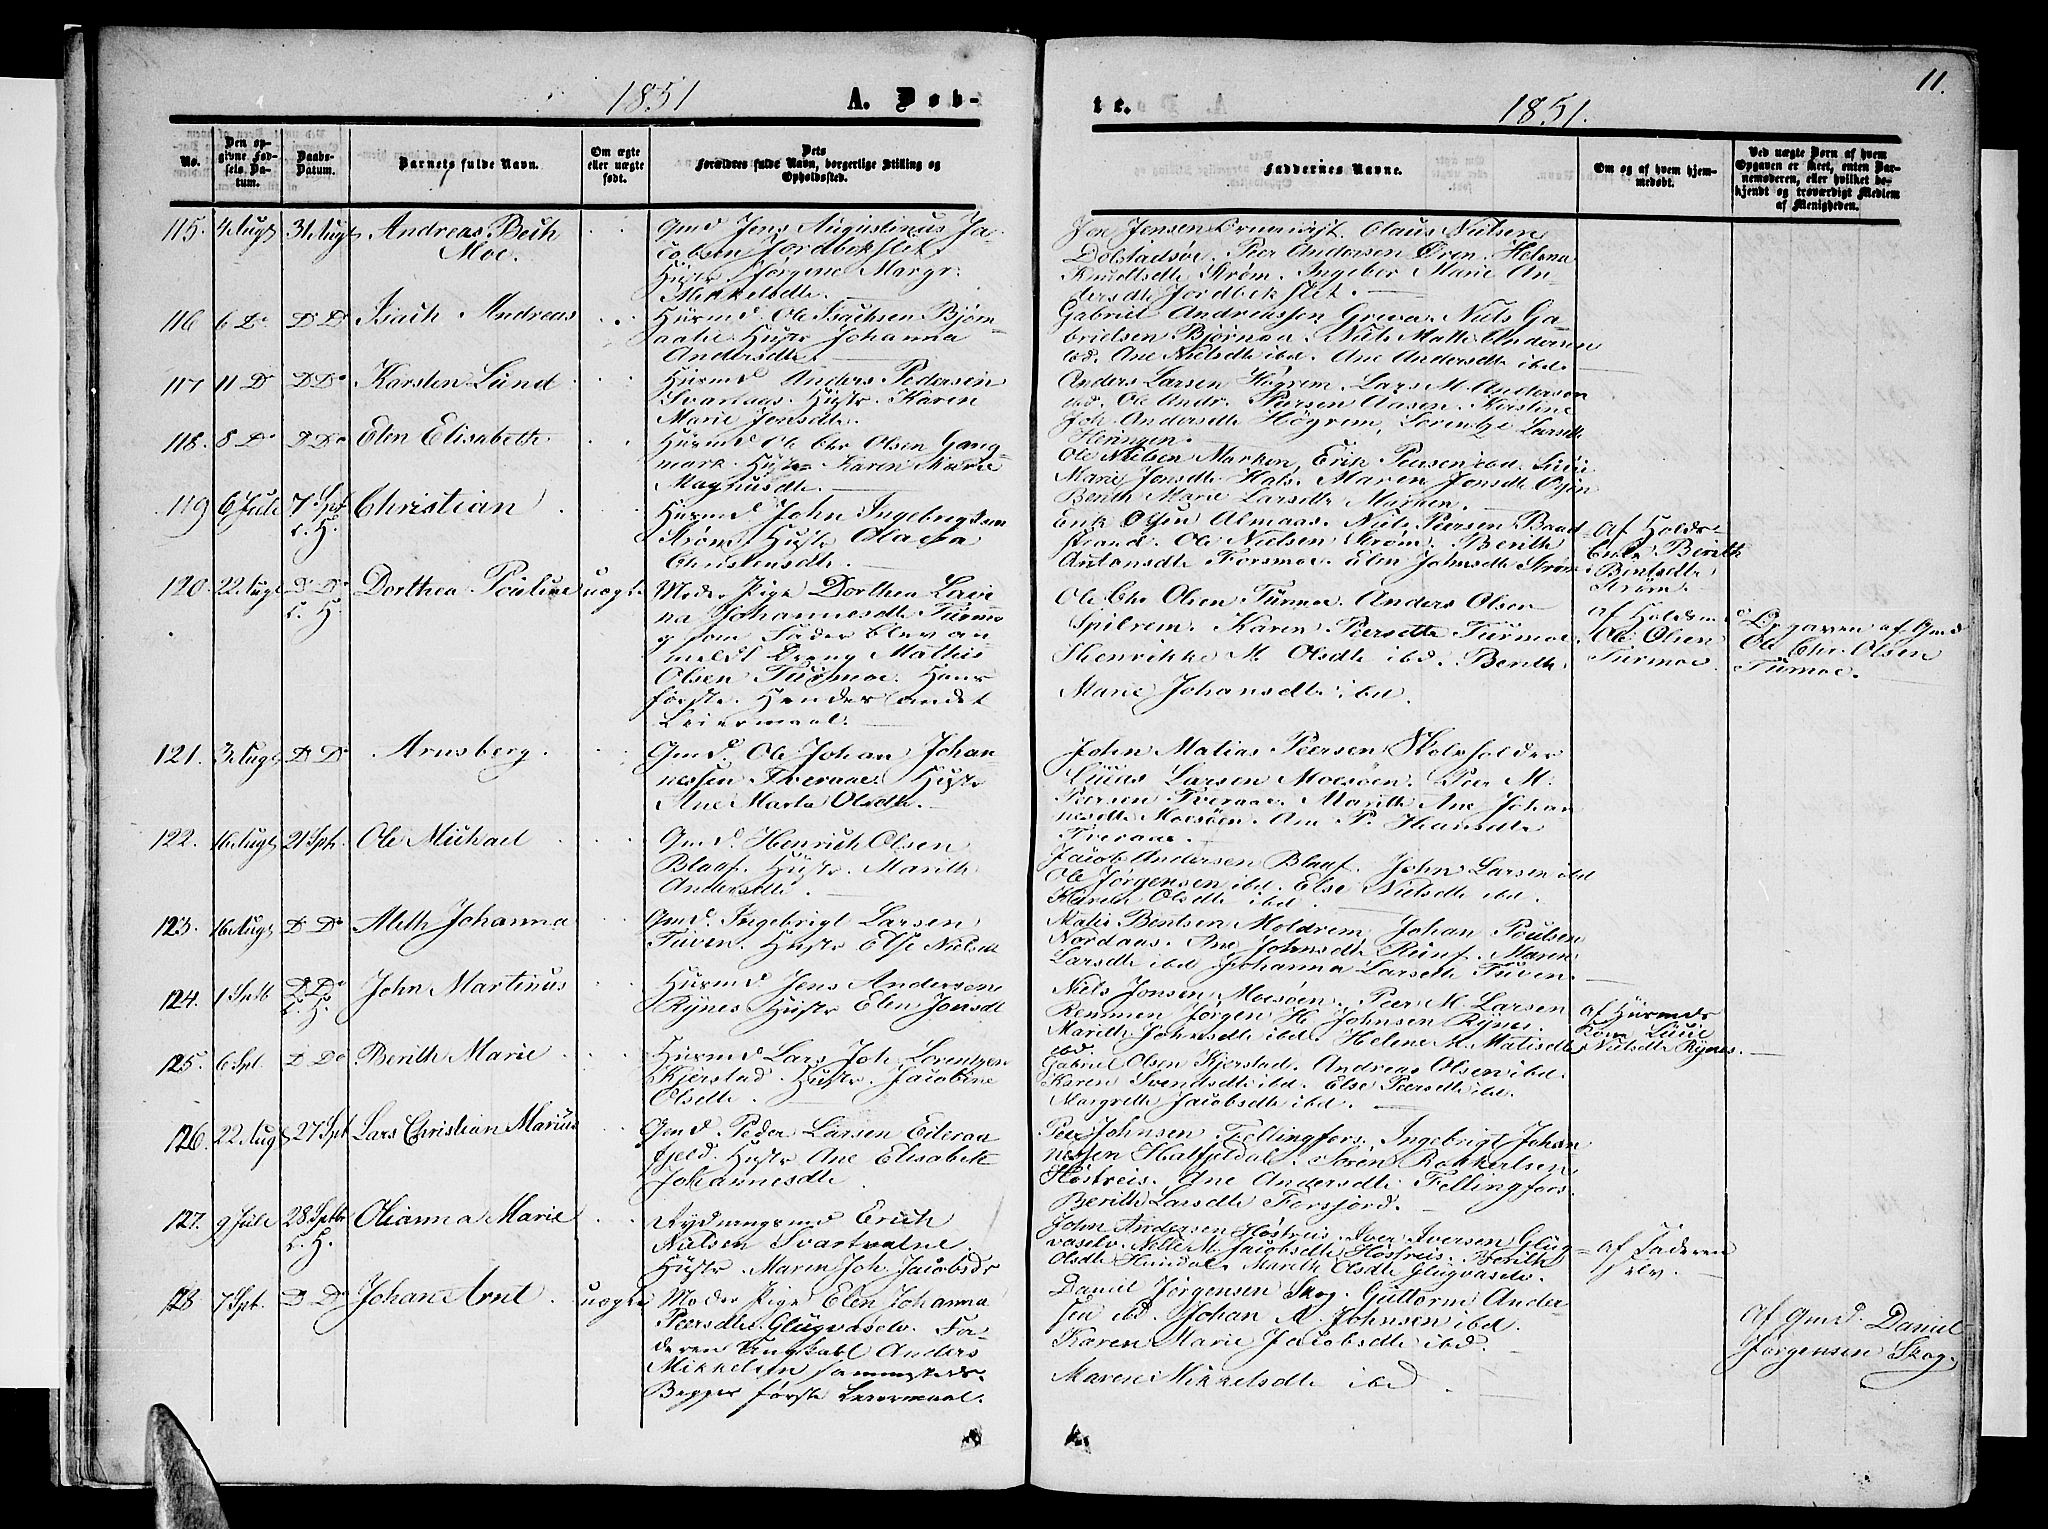 1851 A. Døb-
te. 1851. 11.
No.
Den opgivne Fødsels Datum.
Daabs-Datum.
Barnets fulde Navn.
Om ægte eller uægte født.
Dets Forældres fulde Navn, borgerlige Stilling og Opholdssted.
Faddernes Navne.
Om og af hvem hjemmedøbt.
Ved uægte Born af hvem Opgaven er skeet, enten Barnemoderen, eller hvilket bekjendt og troværdigt Medlem af Menigheden.
115. 4 Augt 31 Augt Andreas Bech
Moe.
Gmd Jens Augustinus Ja-
cobsen Jordbækslet
Hustr Jørgine Margr.
Mikkelsdtr.
Jon Jensen Olaus Nielsen
Dolstadsöe. Peer Andersen Øren. Helena
Knudtsdtr Strøm. Ingebor Marie An-
dersdtr Jordbekslet.
116 6 Do D Do Isach Andreas
Huusmd. Ole Isachsen Bjørn-
aalie Hustr Johanna
Andersdtr.
Gabriel Andreassen Greva. Niels Ga-
brielsen Bjørnaa. Niels Matt. Andersen
ibd. Ane Nielsdtr ibd. Ane Andersdtr ibd.
117 11 D D Do Karsten Lund
Huusmd Anders Pedersen
Svartaas. Hustr. Karen
Marie Jonsdtr.
Anders Larsen Högrem. Lars M. Andersen
ibd. Ole Andr. Peersen Aasen. Kirstine
Joh Andersdtr Högrem, Lorentze Larsdtr
Heringen.
118. 8 Do D Do Elen Elisabeth
Huusmd Ole Chr Olsen Gang-
mark. Hustr Karen Marie
Magnusdtr.
Ole Nielsen Marken, Erik Peersen ibd.
Marie Jonsdtr Hals. Maren Jonsdtr
Benth Marie Larsdtr Marken.
119 6 Juli 7 Spt. Christian
C. H.
Huusmd John Ingebrigtsen
Strøm Hustr Olava
Christensdtr.
Erik Olsen Almaas. Niels Peersen Baad-
strand. Ole Nielsen Strøm. Berith
Antonsdtr Forsmoe. Elen Johnsdtr Strøm
af Holds-
Berith
Bentsdtr
Strøm.
120. 22 Augt D Do Dorthea Pouline uægte
C. H.
Moder Pige Dorthea Lavi
na Johannesdtr Turmo
og som Fader blev an
meldt Dreng Mathis
Olsen Turmoe. Hans
første. Hendes andet
Leiermaal.
Ole Chr Olsen Turmoe. Anders Olsen
Spilrem. Karen Peersdtr Turmoe
Henrikke M. Olsdtr ibd. Berith
Marie Johansdtr ibd.
af Holdsmd
Ole Olsen
Turmoe.
Opgaven af Gmd
Ole Chr. Olsen
Turmoe.
121. 3 Augt D Do Arnsberg.
Gmd. Ole Johan Johan-
nessen Tveraae. Hustr
Ane Marta Olsdtr.
John Matias Peersen Skoleholder
Larsen Mosöen. Peer M.
Peersen Tveraae. Marith Ane Johan
nesdtr Mosöen. Ane P. Hansdtr
Tveraae.
122. 16 Augt 21 Spt. Ole Michael
Gmd. Henrich Olsen
Blaaf. Hustr. Marith
Andersdtr.
Jacob Andersen Blaaf. John Larsen ibd
Ole Jörgensen ibd. Else Nielsdtr ibd.
Karen Olsdtr ibd.
123. 16 Augt D Do Meth Johanna
Gmd. Ingebrigt Larsen
Tuven. Hustr Else Nielsdt
Matis Bentsen Moldrem Johan Poulsen
Nordaas. Ane Johnsdtr Maren
Larsdtr ibd Johanna Larsdtr Tuven.
124. 1 Sptb D Do John Martinus
C. H.
Huusmd Jens Andersen
Rynes Hustr Elen Jonsdt
Niels Jonsen Mosöen. Peer M. Larsen
Remmen Jørgen H. Johnsen Rynes.
Marith Johnsdtr ibd. Helene M. Matisdtr
ibd.
af Huusmds
Kone
Nielsdtr Rynes.
125. 6 Spt. D Do Berith Marie
Huusmd Lars Joh. Lorentzen
Kjerstad. Hustr. Jacobine
Olsdtr.
Gabriel Olsen Kjerstad. Andreas Olsen ibd.
Karen Svendsdtr ibd. Else Peersdtr ibd.
Margreth Jacobsdtr ibd.
126. 22 Augt 27 Spt Lars Christian Marius
Gmd. Peder Larsen Eiteraa
fjeld. Hustr Ane Elisabet
Johannesdtr
Peer Johnsen Fellingfors. Ingebrigt Johan
nessen Hatfjeldal. Sören
Höstreis. Ane Andersdtr Fellingfors.
Berith Larsdtr Forsjord.
127. 9 Juli 28 Sptb Olianna Marie
C. H.
Rydningsmd Erich
Nielsen Svartvatne
Hustr. Maren Joh Jacobsdr
John Andersen Höstreis. Iver Iversen Glug-
vaselv. Nille M. Jacobsdtr Höstreis. Berith
Olsdtr Hundal. Marith Olsdtr Glugvaselv.
af Faderen
selv.
128 7 Spt. D Do Johan Arnt uægte
Moder Pige Elen Johanna
Peersdtr Glugvaselv. Fa-
deren Ungkarl Anders
Mikkelsen sammesteds.
Begges første Leiermaal.
Daniel Jørgensen Skog. Guttorm Ander-
sen ibd. Johan M. Johnsen ibd.
Karen Marie Jacobsdtr ibd.
Maren Mikkelsdtr ibd.
af Gmd. Daniel
Jørgensen Skog.